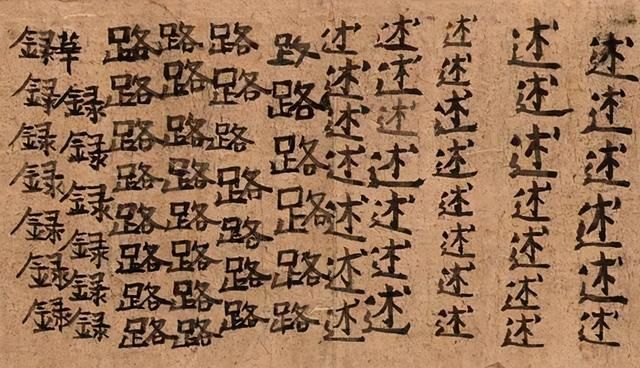 述述述述述述
述述述述述述述
述述述述述述述述
述述述述述述述
述述述述述述述
路路路路路路
路路路路路路路
路路路路路路路路
路路路路路路路路
華録録録録録録
録録録録録録録